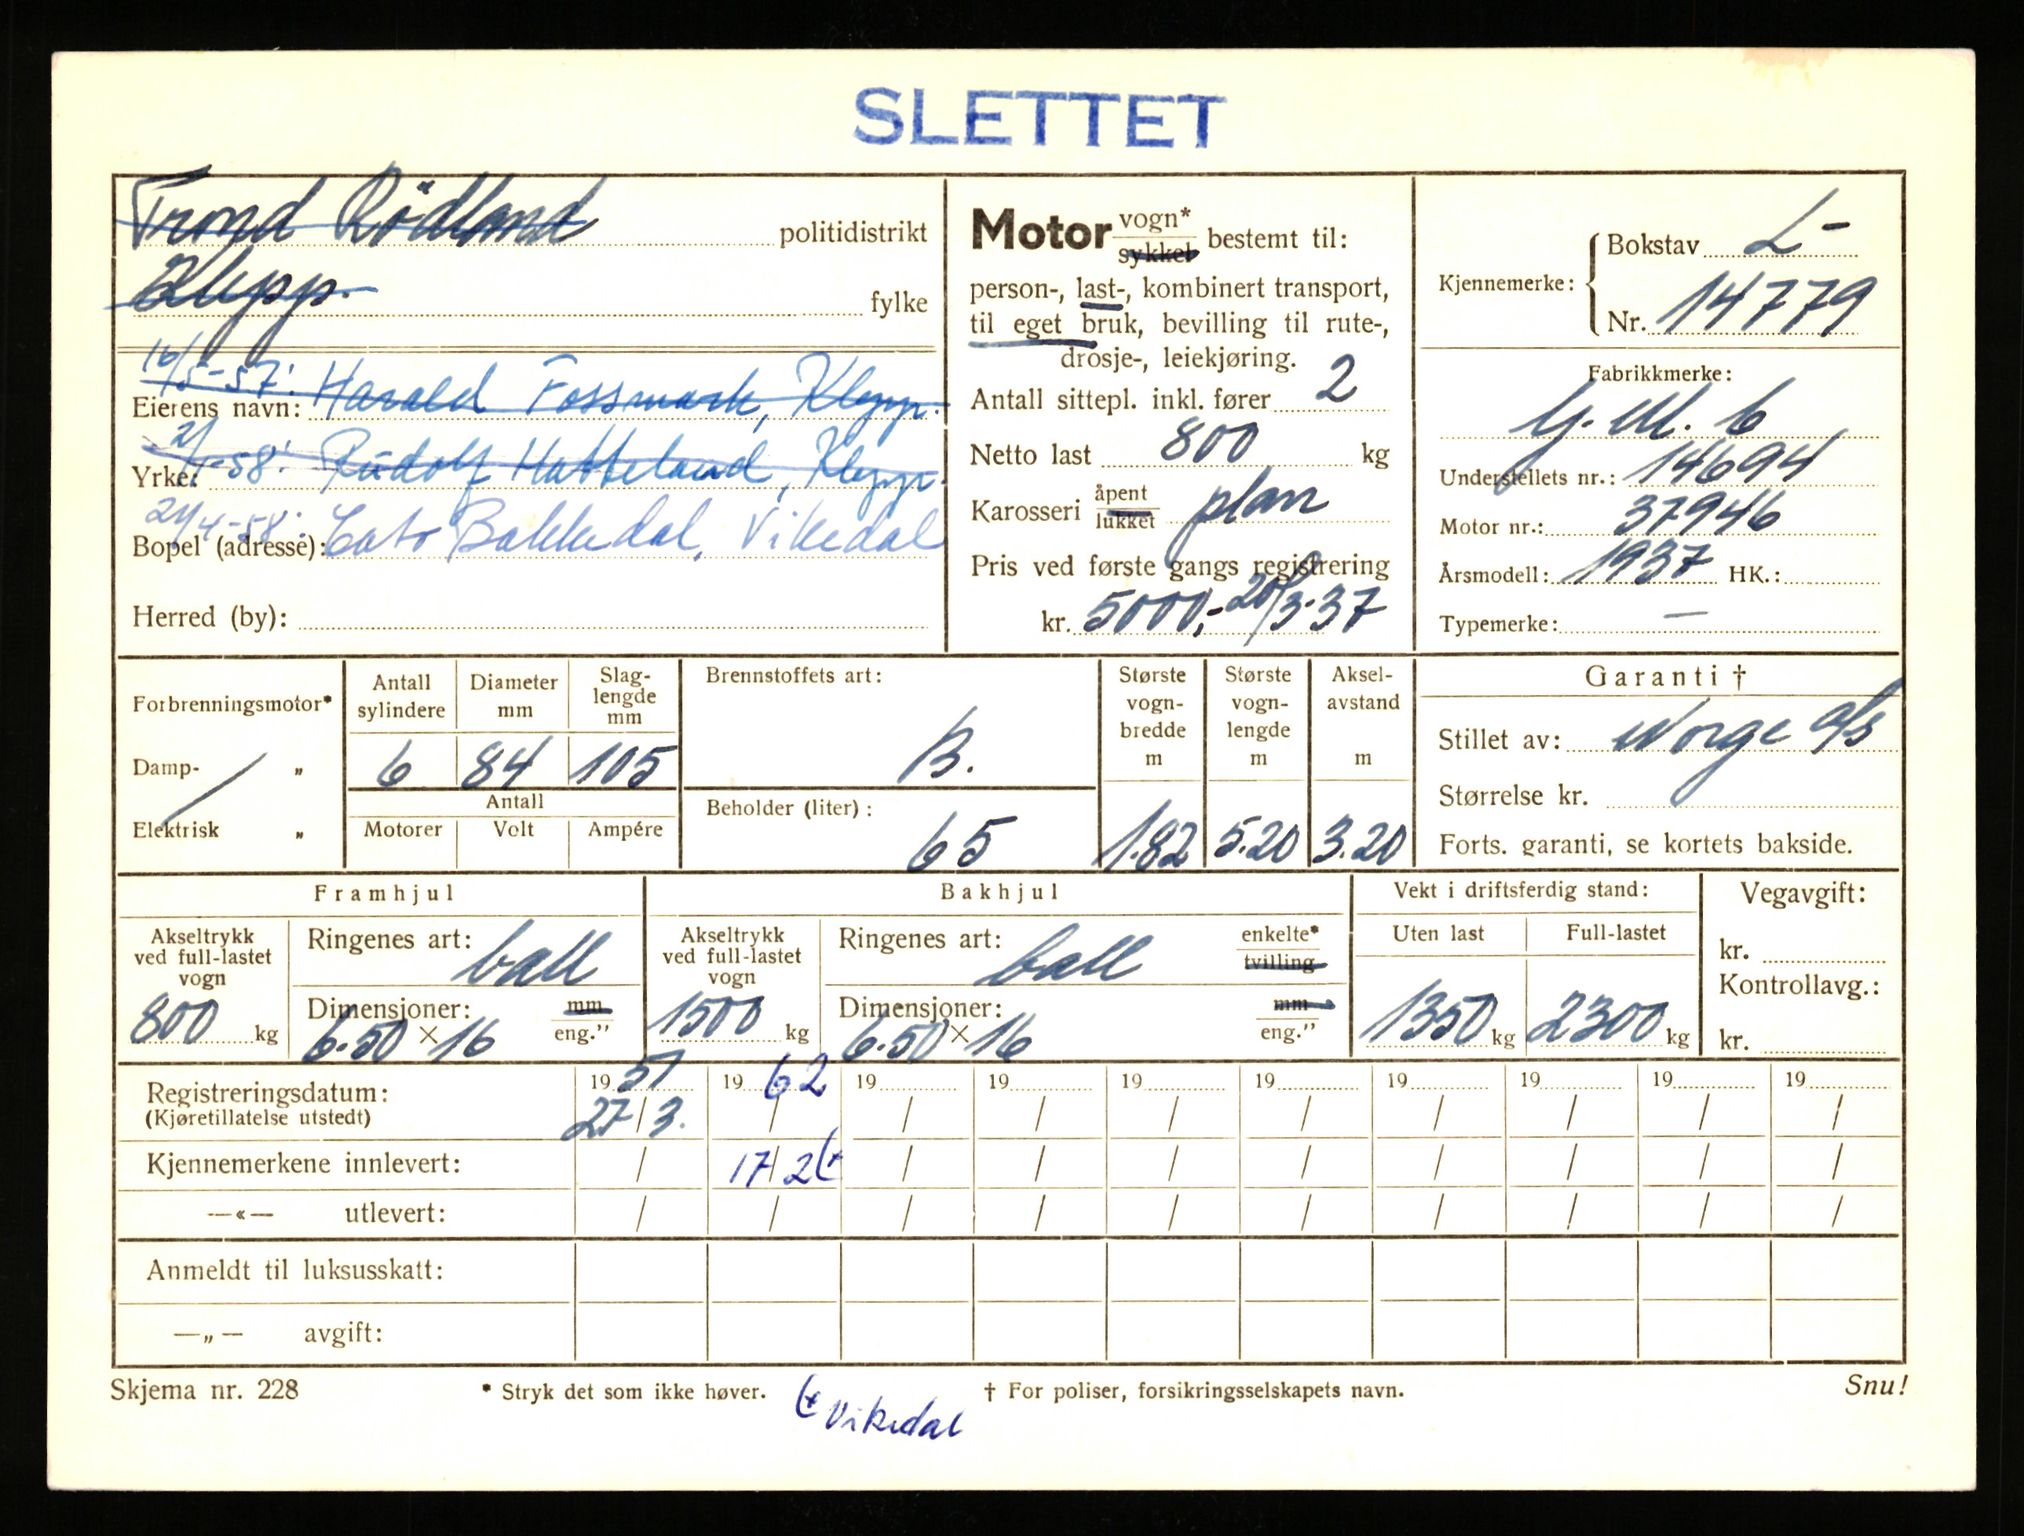 SLETTET
Trond Rödland politidistrikt
Klepp. fylke
16/5-57: Harald Fossmark, Klepp.
Eierens navn:
2/1-58: Rudolf Hatteland, Klepp.
Yrke:
21/4-58: Cato Bakkedal, Vikedal
Bopel (adresse):
Herred (by):
Motor vogn* sykkel bestemt til:
person-, last-, kombinert transport,
til eget bruk, bevilling til rute-,
drosje-, leiekjøring.
Antall sittepl. inkl. fører 2
Netto last 800 kg
Karosseri åpent lukket plan
Pris ved første gangs registrering
kr. 5000,- 20/3-37
Kjennemerke: Bokstav L-
Nr. 14779
Fabrikkmerke:
G.M.C
Understellets nr.: 14694
Motor nr.: 37946
Årsmodell: 1937 HK.:
Typemerke: —
Forbrenningsmotor*
Damp- „
Elektrisk „
Antall sylindere 6
Diameter mm 84
Slag-lengde mm 105
Antall
Motorer Volt Ampére
Brennstoffets art:
B.
Beholder (liter):
65
Største vogn-bredde m 1.82
Største vogn-lengde m 5.20
Aksel-avstand m 3.20
Garanti †
Stillet av: Norge A/S
Størrelse kr.
Forts. garanti, se kortets bakside.
Framhjul
Akseltrykk ved full-lastet vogn
800 kg
Ringenes art: ball
Dimensjoner: mm
6.50 × 16 eng.”
Bakhjul
Akseltrykk ved full-lastet vogn
1500 kg
Ringenes art: ball enkelte* tvilling
Dimensjoner: mm
6.50 × 16 eng.”
Vekt i driftsferdig stand:
Uten last Full-lastet
1350 kg 2300 kg
Vegavgift:
kr.
Kontrollavg.:
kr.
Registreringsdatum: 1957 1962 19 19 19 19 19 19 19 19
(Kjøretillatelse utstedt) 27/3. / / / / / / / / /
Kjennemerkene innlevert: / 17/2 (+ / / / / / / / /
—«— utlevert: / / / / / / / / / /
Anmeldt til luksusskatt:
—„— avgift:
Skjema nr. 228 * Stryk det som ikke høver. † For poliser, forsikringsselskapets navn. Snu!
(+ Vikedal